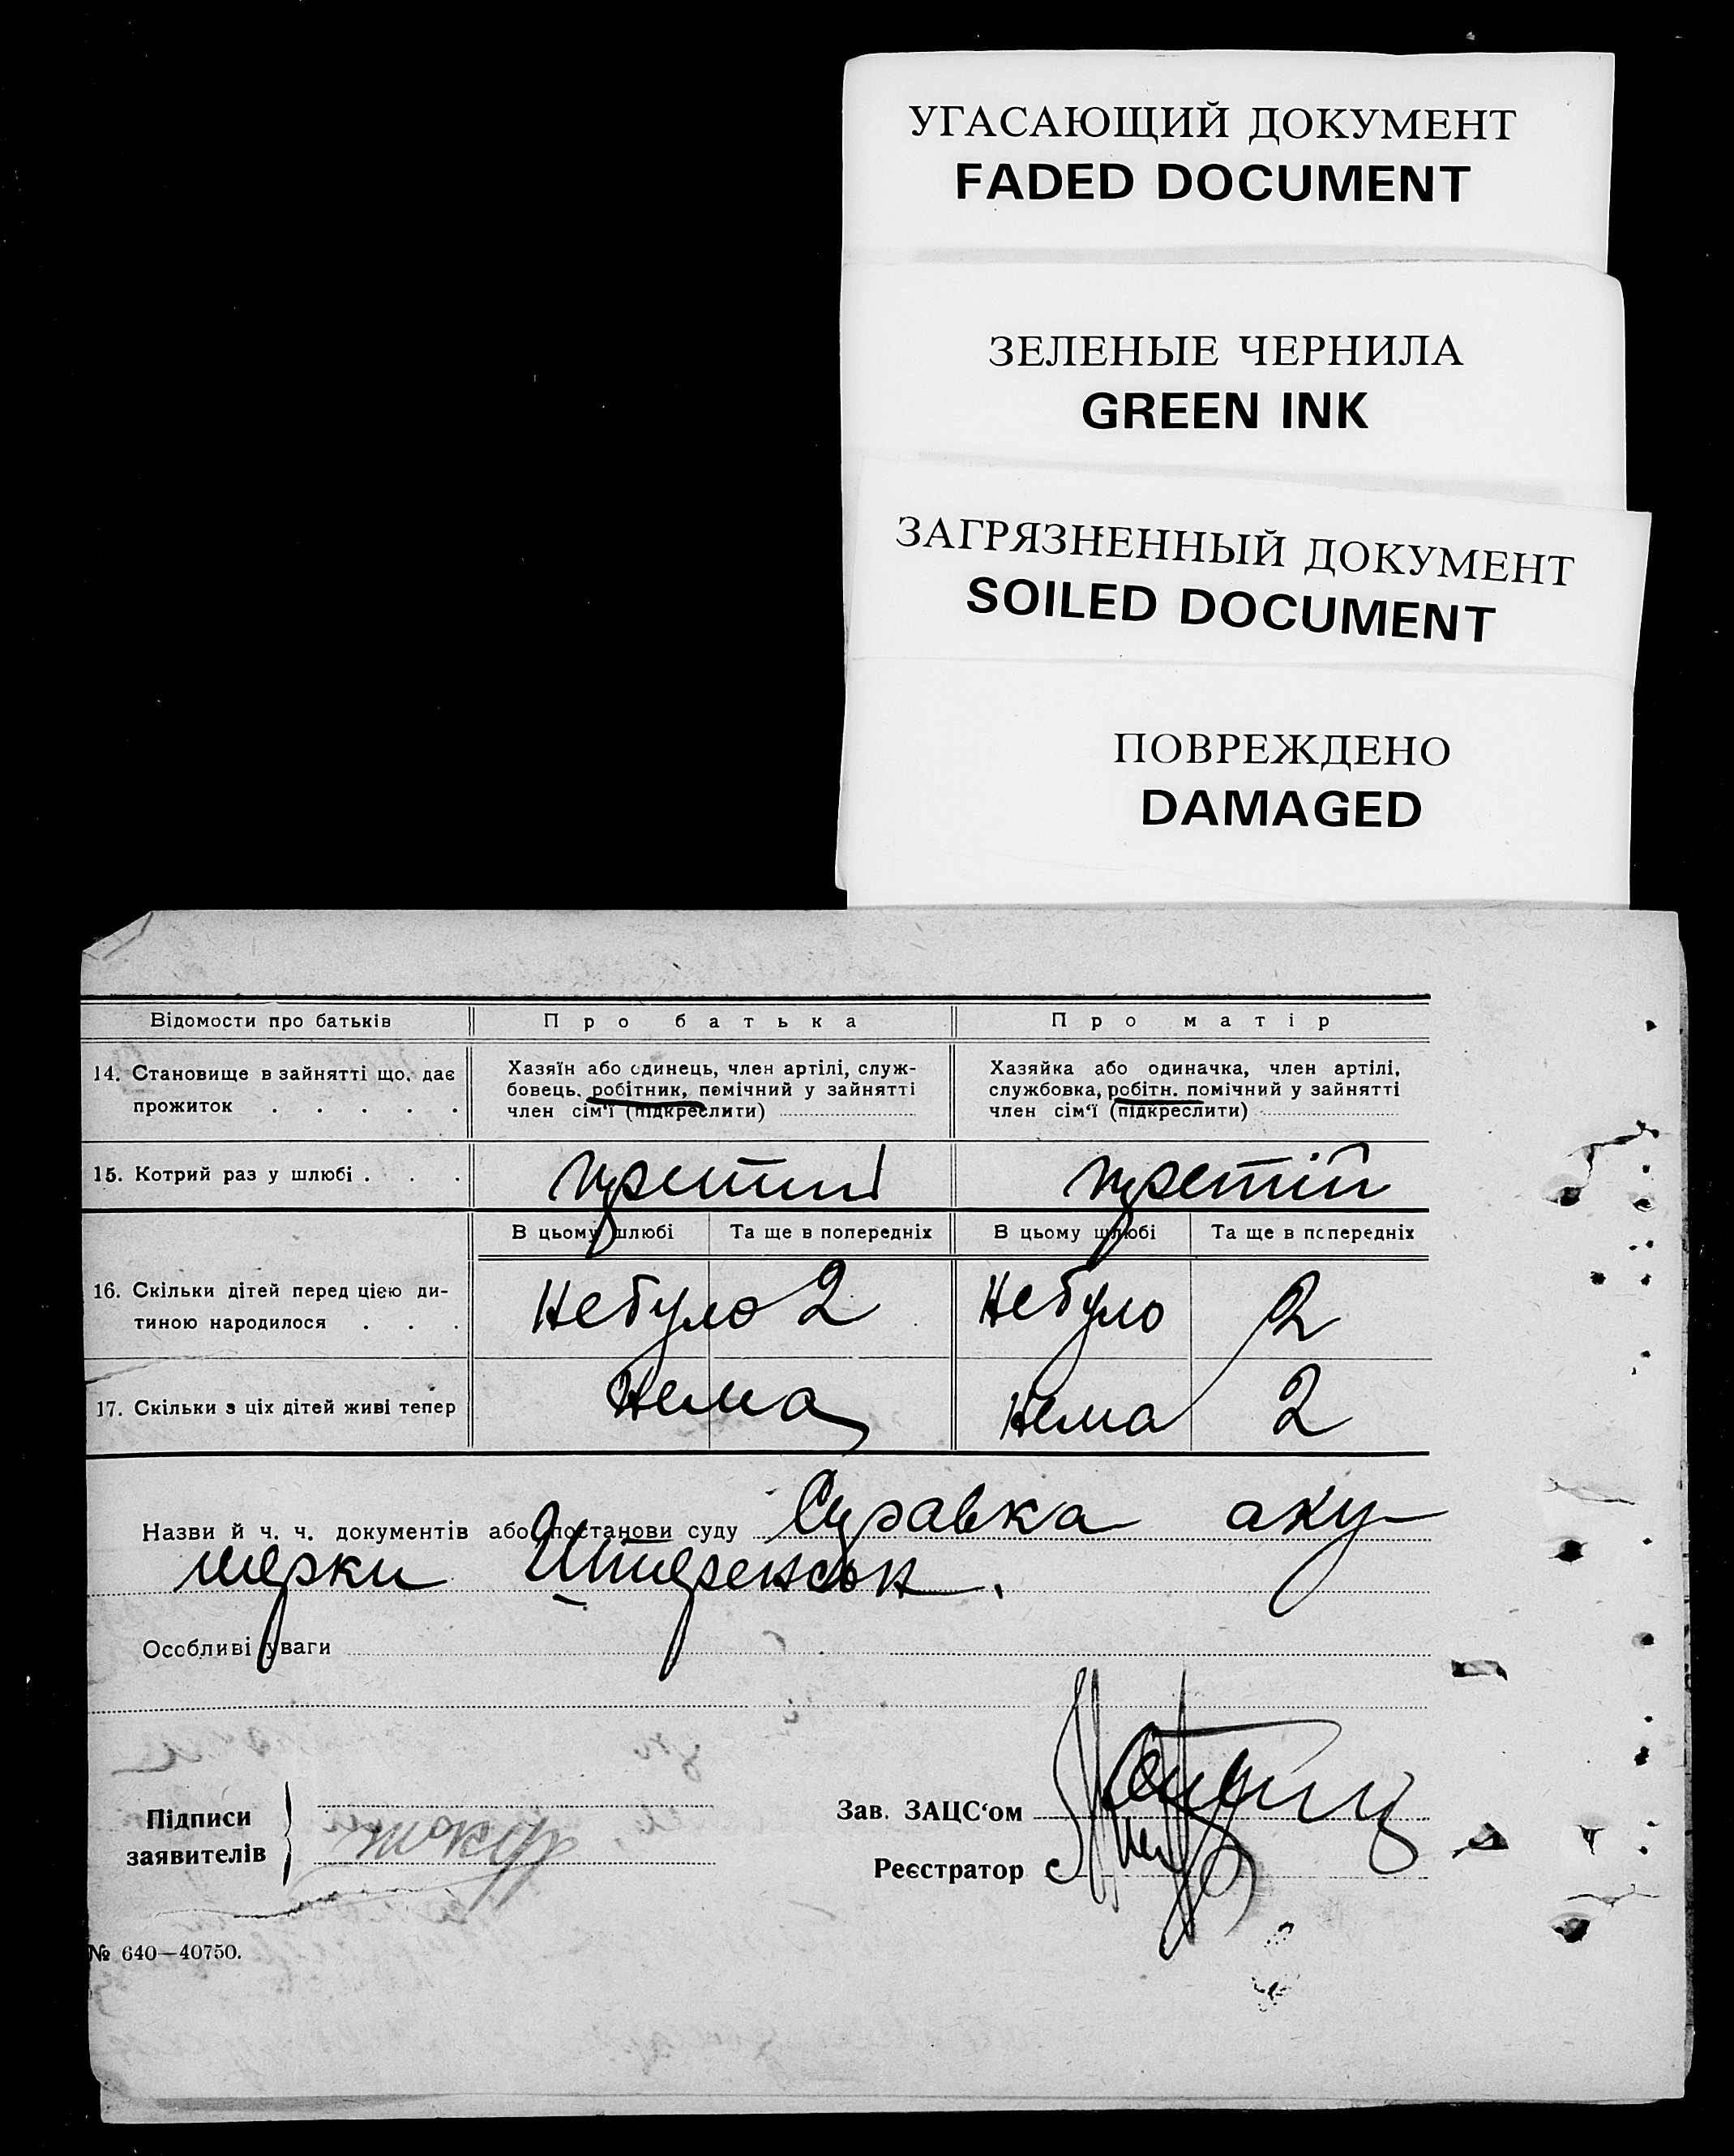 УГАСАЮЩИЙ ДОКУМЕНТ
FADED DOCUMENT
ЗЕЛЕНЫЕ ЧЕРНИЛА
GREEN INK
ЗАГРЯЗНЕННЫЙ ДОКУМЕНТ
SOILED DOCUMENT
ПОВРЕЖДЕНО
DAMAGED
Відомости про батьків Про батька Про матір
14. Становище в зайнятті що, дає прожиток . . . . .
Хазяїн або одинець, член артілі, служ-
бовець, робітник, помічний у зайнятті
член сім'ї (підкреслити)
Хазяйка або одиначка, член артілі,
службовка, робітн. помічний у зайнятті
член сім'ї (підкреслити)
15. Котрий раз у шлюбі . . . третій
В цьому шлюбі Та ще в попередніх В цьому шлюбі Та ще в попередніх
16. Скільки дітей перед цією ди-
тиною народилося . . . Небуло 2 Небуло 2
17. Скільки з ціх дітей живі тепер Нема Нема 2
Назви й ч. ч. документів або постанови суду Справка аку-
шерки
Особливі уваги
Підписи
заявителів
Зав. ЗАЦС'ом
Реєстратор
№ 640—40750.